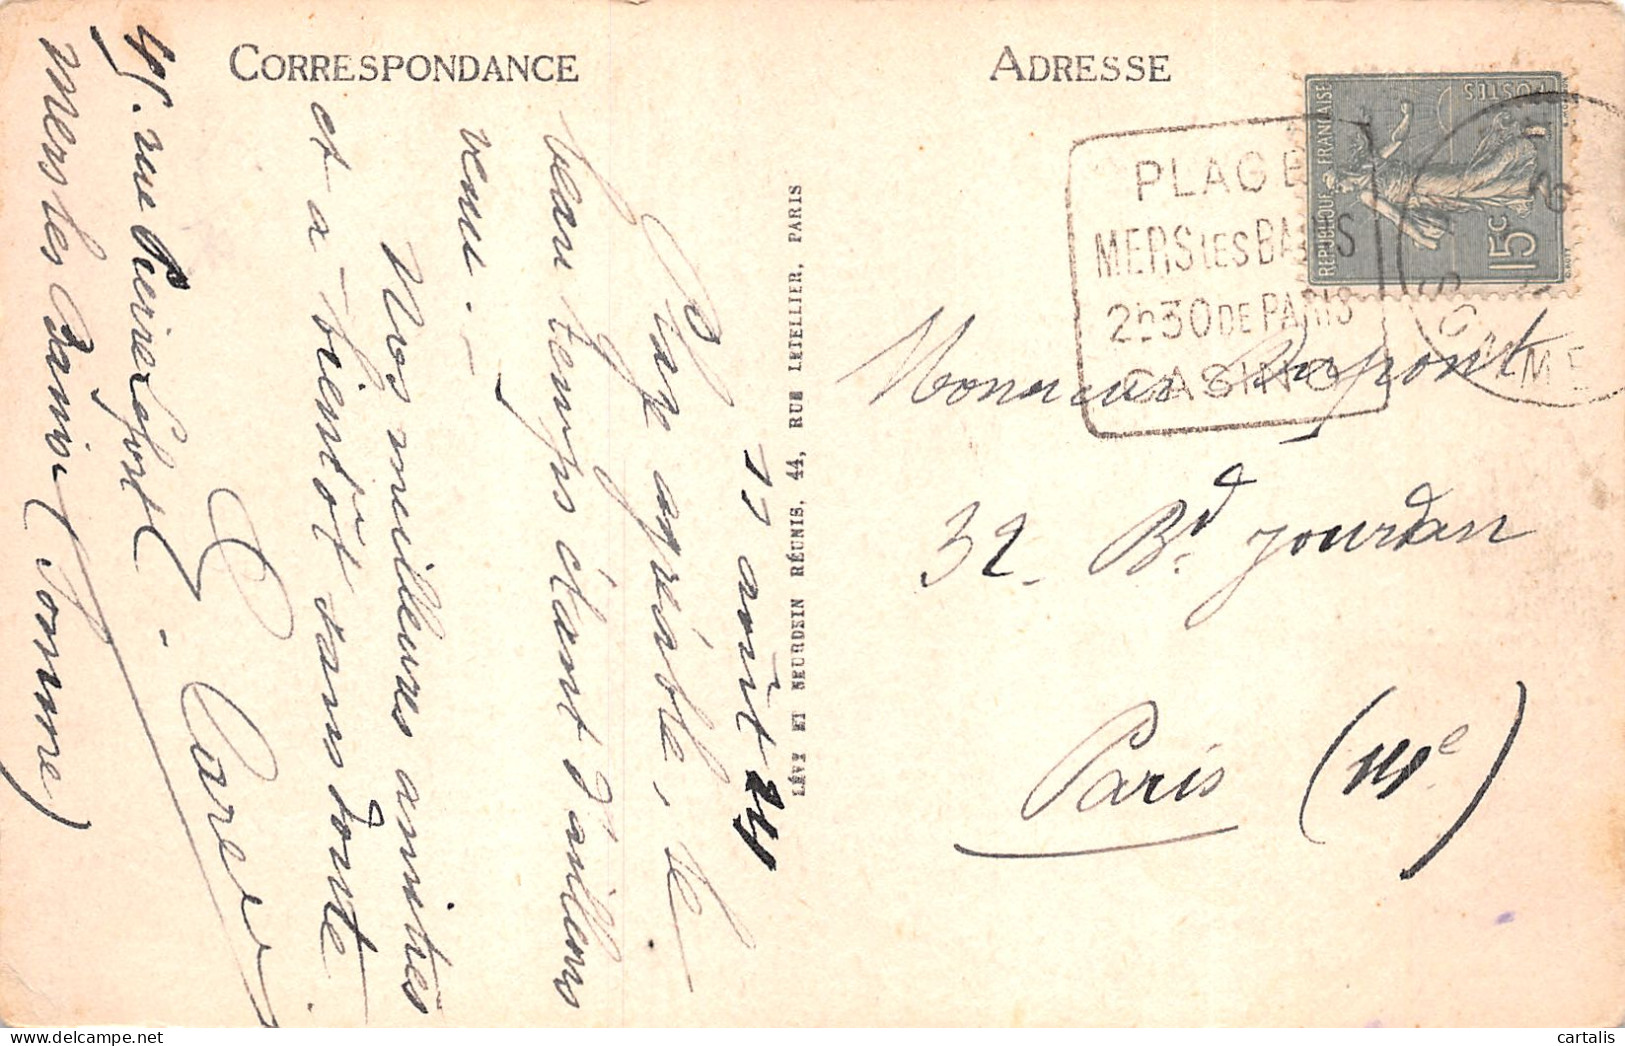 CORRESPONDANCE
17 août 24
Plage agréable, le
beau temps étant d'ailleurs
venu. -
Nos meilleures amitiés
et à bientôt sans doute.
45. rue Pierre Lefort -
Mers les Bains (Somme)
LÉVY ET NEURDEIN RÉUNIS, 44, RUE LETELLIER, PARIS
ADRESSE
RÉPUBLIQUE FRANÇAISE
POSTES
15c
PLAGE
MERS LES BAINS
2h30 DE PARIS
CASINO
SOMME
Monsieur Dupont
32 - Bd. Jourdan
Paris (14e)
cartalis